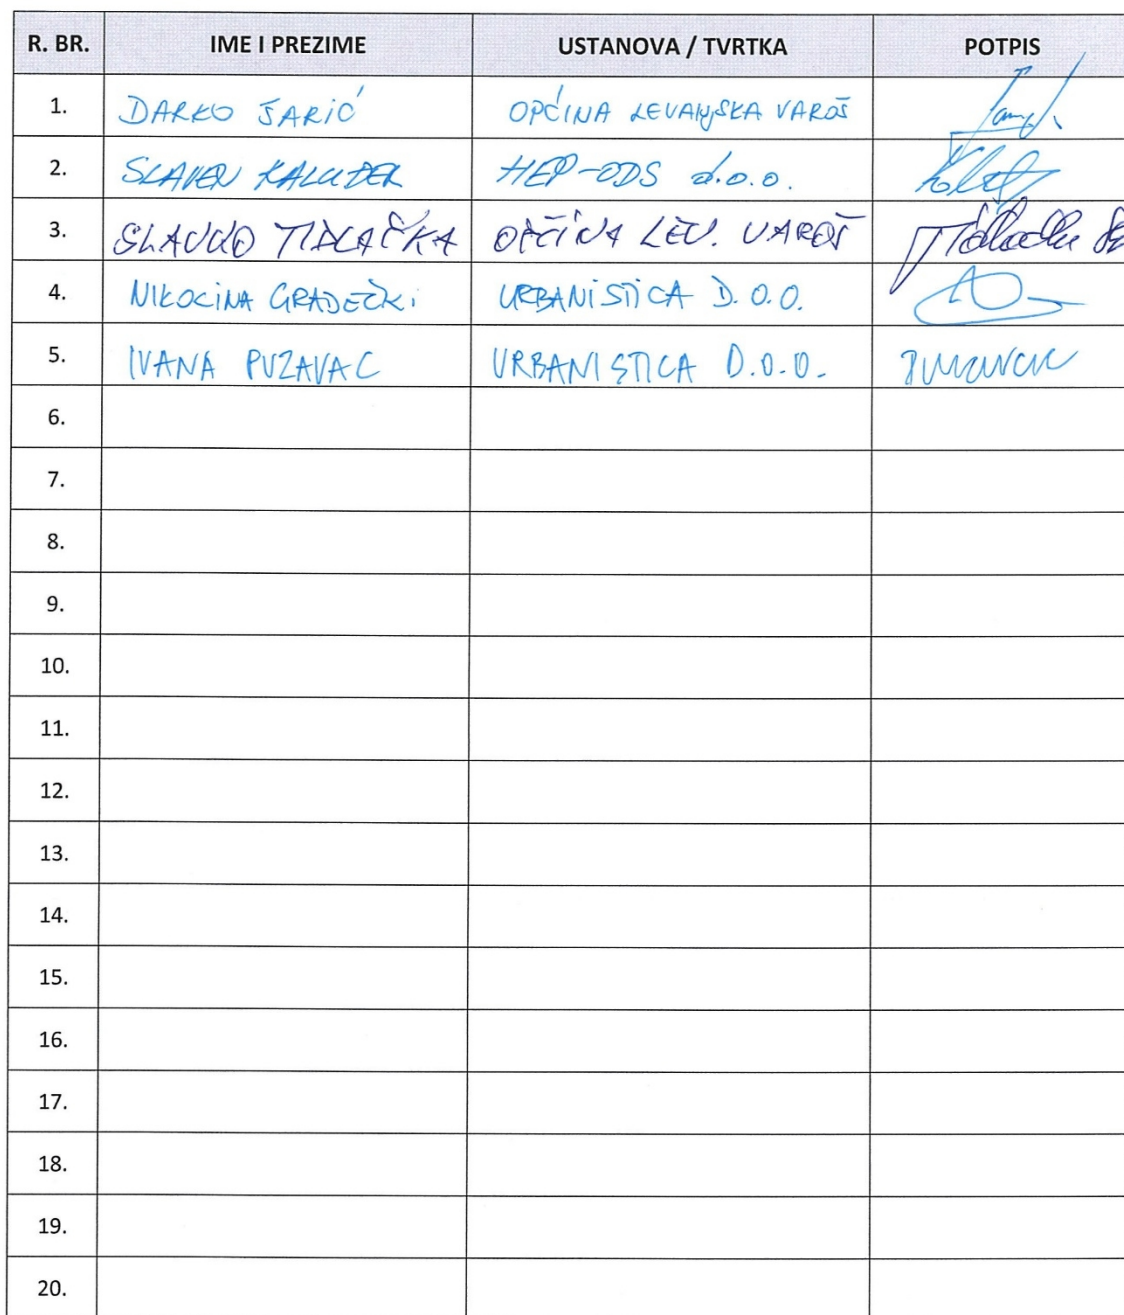 R. BR. IME I PREZIME USTANOVA / TVRTKA POTPIS
1. DARKO ŠARIĆ OPĆINA LEVANJSKA VAROŠ
2. SLAVEN KALUĐER HEP-ODS d.o.o.
3. SLAVKO TIDLAČKA OPĆINA LEV. VAROŠ
4. NIKOLINA GRADEČKI URBANISTICA D.O.O.
5. IVANA PUZAVAC URBANISTICA D.O.O.
6.
7.
8.
9.
10.
11.
12.
13.
14.
15.
16.
17.
18.
19.
20.